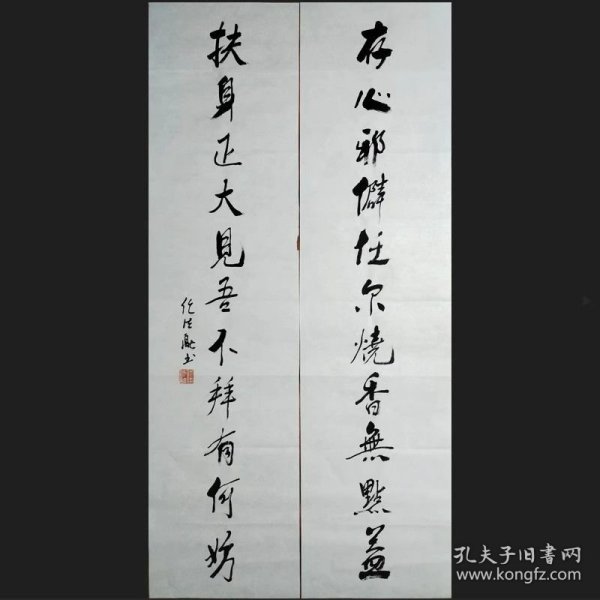 存心邪僻任尔燒香無點益
扶身正大見吾不拜有何妨
孔夫子旧书网
www.kongfz.com